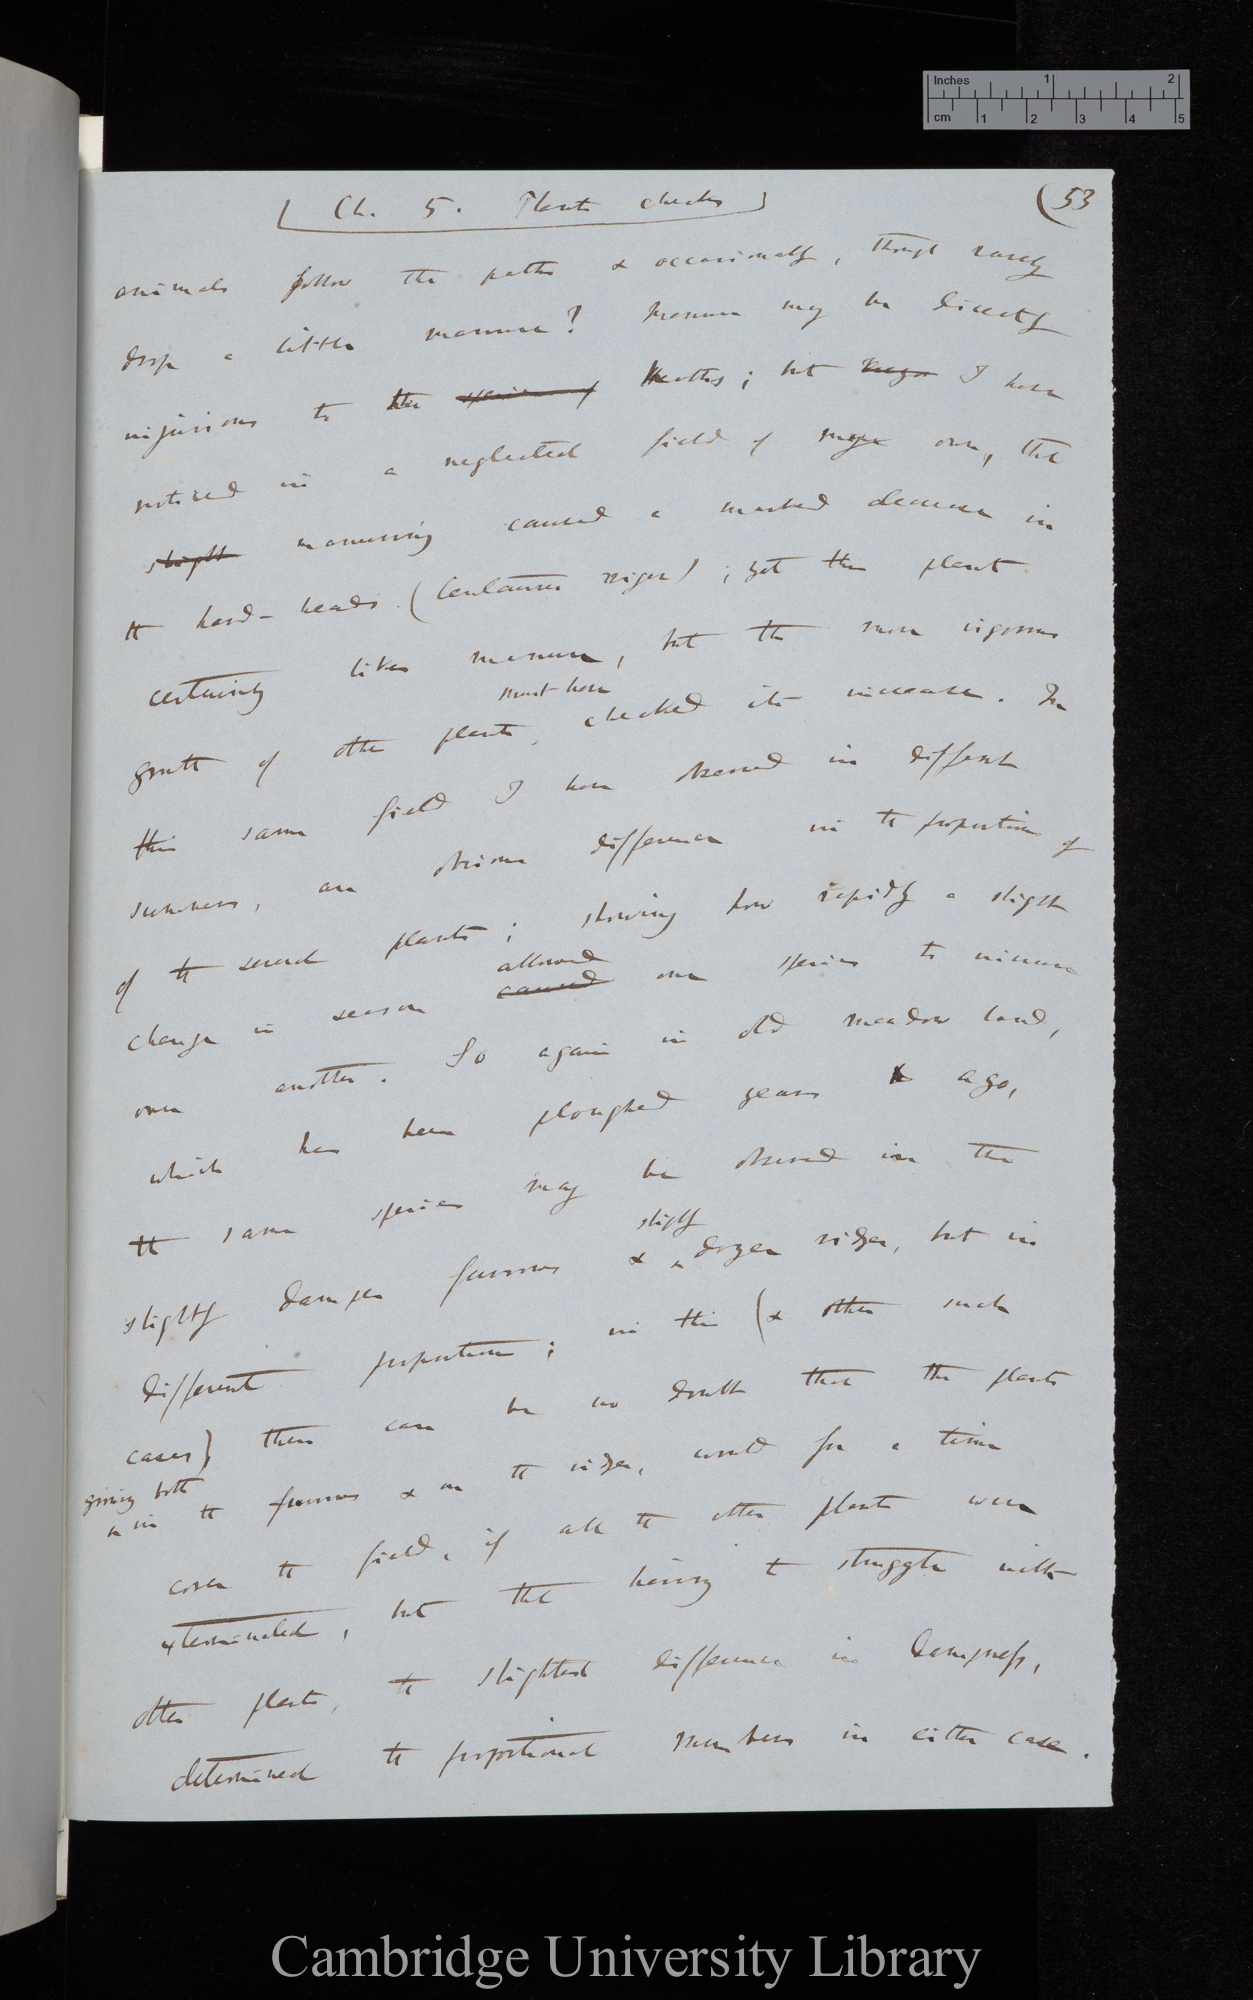 Inches 1 2
cm 1 2 3 4 5
Ch. 5. Plants checks
(53
animals follow the paths & occasionally, though rarely
drop a little manure? Manure may be directly
injurious to the species of Heaths; but I have
noticed in a neglected field of my own, that
slight manuring caused a marked decrease in
the hard-heads (Centaurea nigra); yet this plant
certainly likes manure, but the more vigorous
must have
growth of other plants, checked its increase. In
this same field I have observed in different
summers, an obvious difference in the proportion of
of the several plants; showing how rapidly a slight
allowed
change in season caused one species to increase
over another. So again in old meadow land,
which has been ploughed years ago,
the same species may be observed in the
slightly
slightly damper furrows & dryer ridges, but in
different proportions; in this (& other such
cases) there can be no doubt that the plants
growing both
in the furrows & on the ridges, would for a time
cover the field, if all the other plants were
exterminated, but that having to struggle with
other plants, the slightest difference in dampness,
determined the proportional numbers in either case.
Cambridge University Library